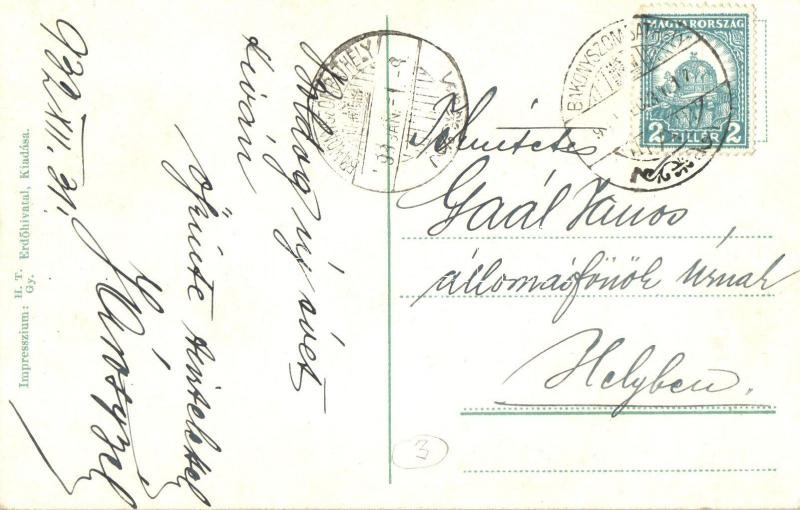 932. XII. 31.
Boldog új évet
kíván
őszinte tisztelettel
Impresszium: H. T. Erdőhivatal, Kiadása.
Gy.
MAGYARORSZÁG
2 FILLÉR 2
BAKONYSZOMBATHELY
BAKONYSZOMBATHELY
Gaál János
állomásfőnök Úrnak
Helyben.
3